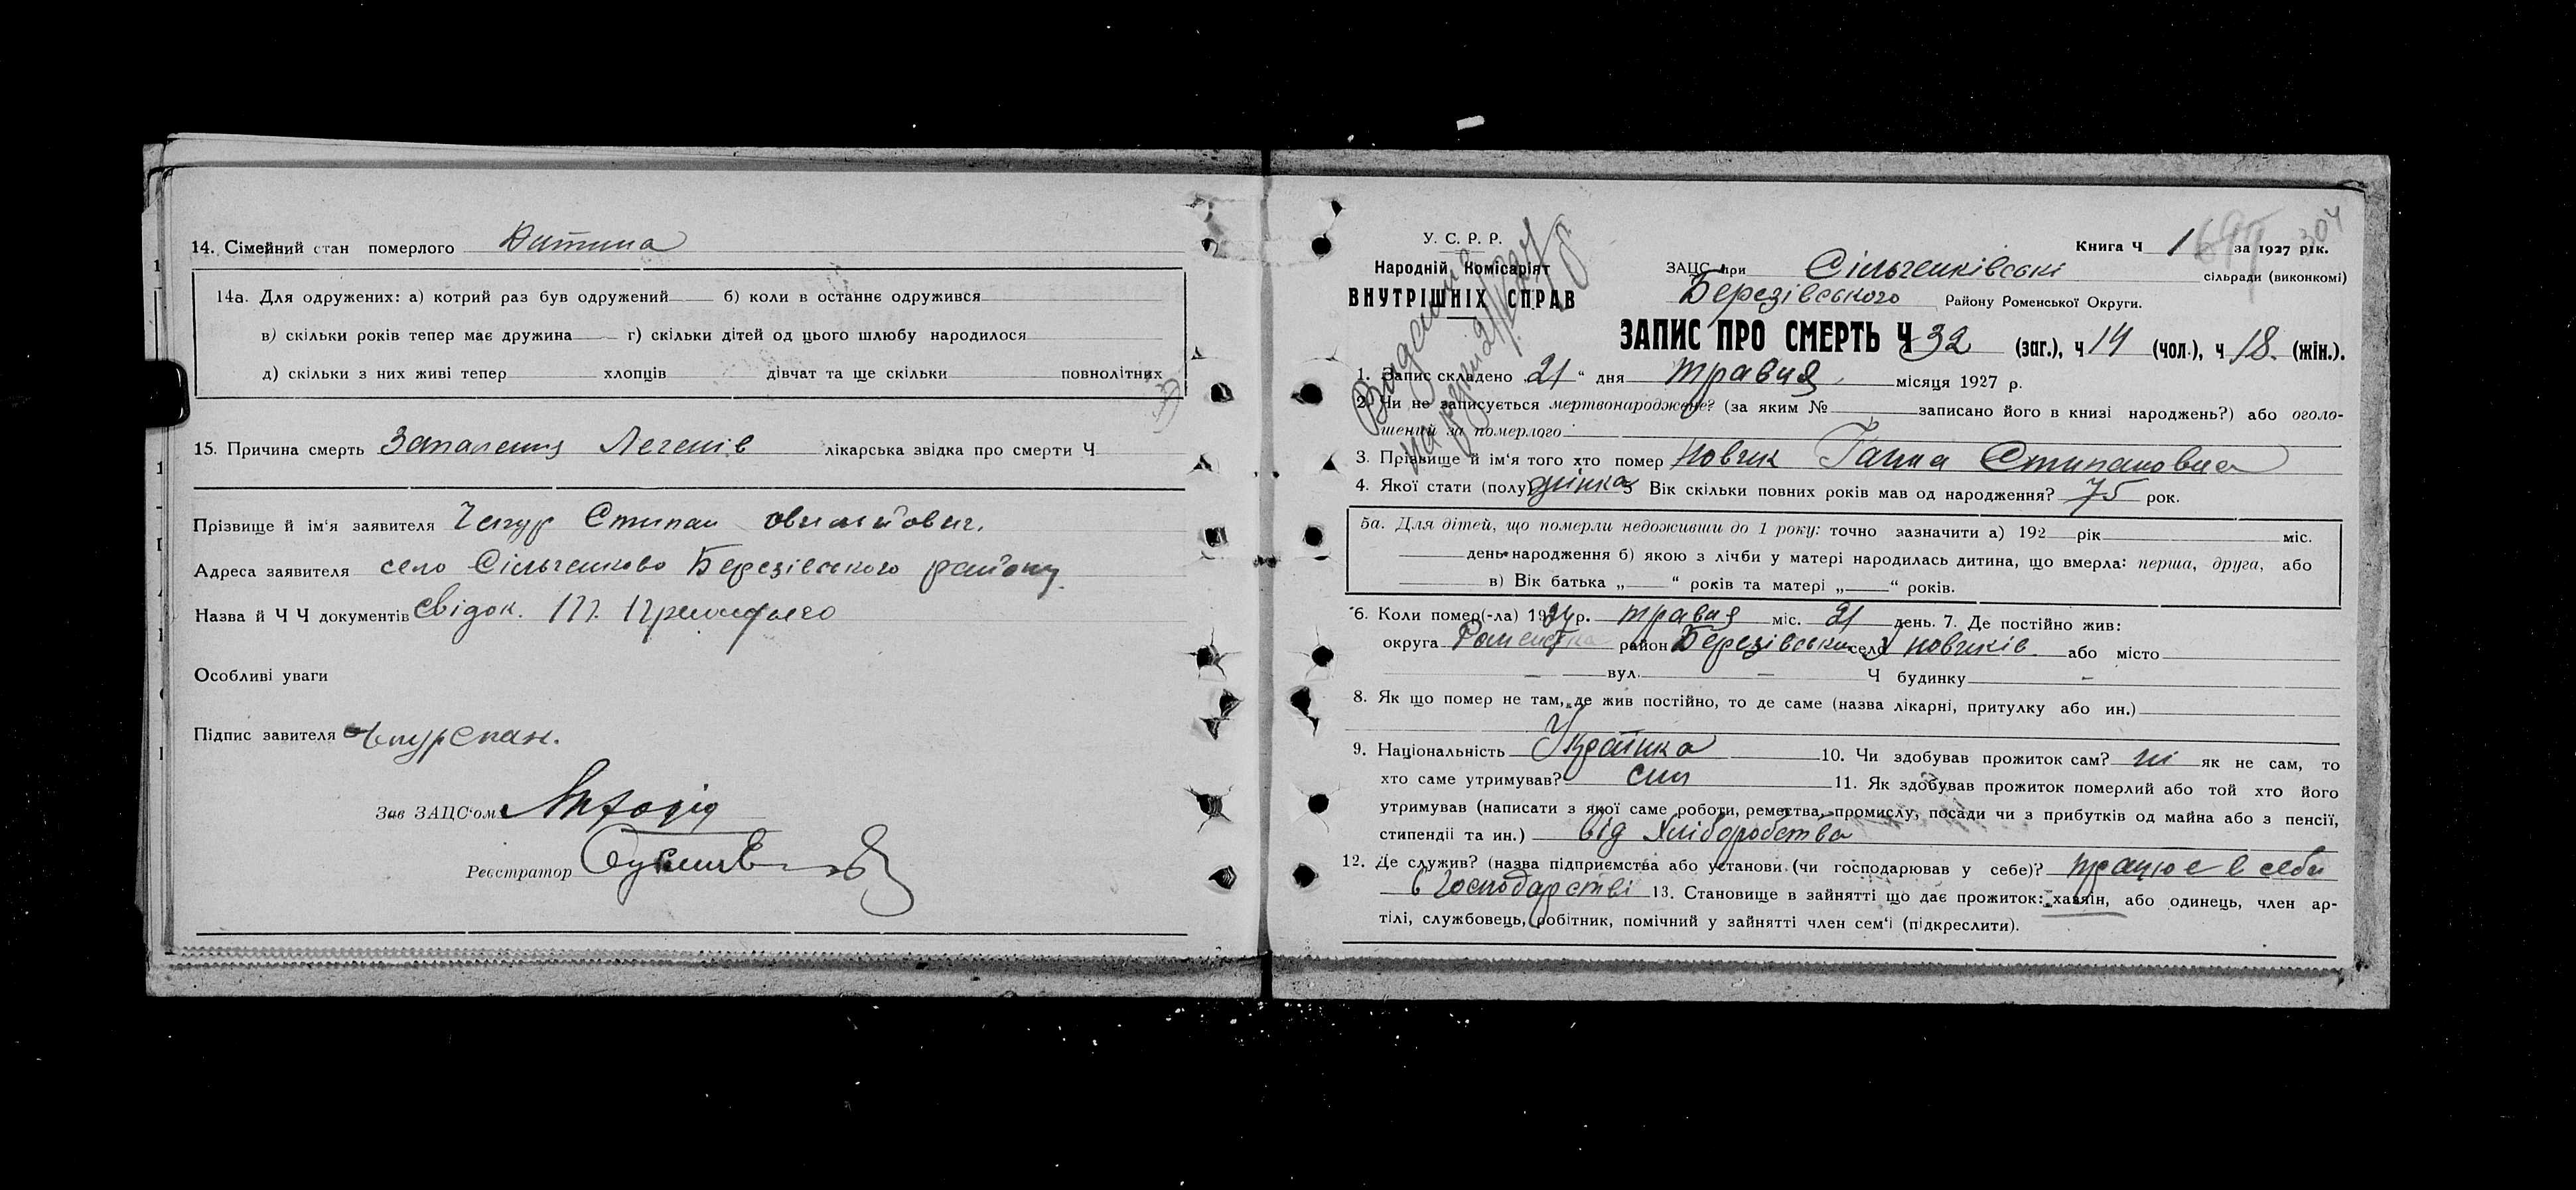 14. Сімейний стан померлого Дитина
14а. Для одружених: а) котрий раз був одружений б) коли в останнє одружився
в) скільки років тепер має дружина г) скільки дітей од цього шлюбу народилося
д) скільки з них живі тепер хлопців дівчат та ще скільки повнолітних
15. Причина смерть Запалення Легенів лікарська звідка про смерти Ч
Прізвище й ім'я заявителя Чепур Степан
Адреса заявителя село Сільченково Березівського району
Назва й Ч Ч документів Свідок.
Особливі уваги
Підпис завителя
Зав ЗАЦС'ом
Реєстратор
У. С. Р. Р.
Народній Комісаріят
ВНУТРІШНІХ СПРАВ
Книга Ч 1 за 1927 рік. 304
ЗАЦС при Сільченківські сільради (виконкомі)
Березівського Району Роменської Округи.
ЗАПИС ПРО СМЕРТЬ Ч 32 (заг.), ч 14 (чол.), ч 18. (жін.).
1. Запис складено „21“ дня травня місяця 1927 р.
2. Чи не записується мертвонароджене? (за яким № записано його в книзі народжень?) або оголо-
шений за померлого
3. Прізвище й ім'я того хто помер Новчик Ганна Стипановна
4. Якої стати (полу) жінка 5 Вік скільки повних років мав од народження? 75 рок.
5а. Для дітей, що померли недоживши до 1 року: точно зазначити а) 192 рік міс.
день народження б) якою з лічби у матері народилась дитина, що вмерла: перша, друга, або
в) Вік батька „ “ років та матері „ “ років.
6. Коли помер(-ла) 1927 р. травня міс. 21 день. 7. Де постійно жив:
округа Роменська район Березівськи село Новчиків або місто
– вул. – Ч будинку –
8. Як що помер не там, де жив постійно, то де саме (назва лікарні, притулку або ин.)
9. Національність Українка 10. Чи здобував прожиток сам? ні як не сам, то
хто саме утримував? син 11. Як здобував прожиток померлий або той хто його
утримував (написати з якої саме роботи, ремества, промислу, посади чи з прибутків од майна або з пенсії,
стипендії та ин.) від Хліборобства
12. Де служив? (назва підприємства або установи (чи господарював у себе)? працює в себе
в Господарстві 13. Становище в зайнятті що дає прожиток: хазяін, або одинець, член ар-
тілі, службовець, робітник, помічний у зайнятті член сем'ї (підкреслити).